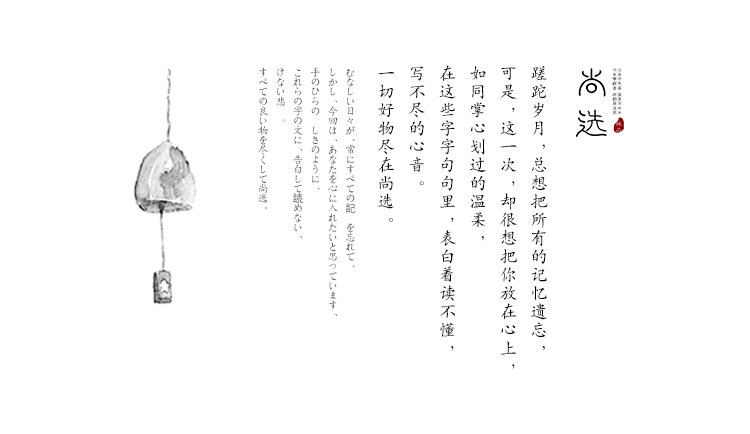 尚选
蹉跎岁月，总想把所有的记忆遗忘，
可是，这一次，却很想把你放在心上，
如同掌心划过的温柔，
在这些字字句句里，表白着读不懂，
写不尽的心音。
一切好物尽在尚选。
むなしい日々が、常にすべての記　を忘れて、
しかし、今回は、あなたを心に入れたいと思つています、
手のひらの　しさのように、
これらの字の文に、告白して読めない、
けない悲　。
すべての良い物を尽くして尚选。